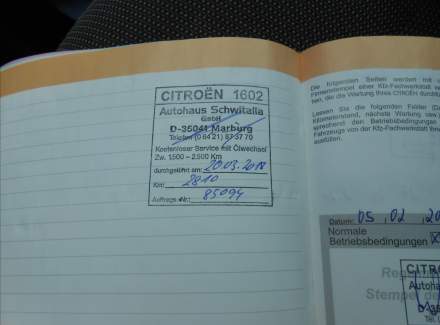 CITROËN 1602
Autohaus Schwitalla
GmbH
D-35041 Marburg
Telefon (0 64 21) 8 37 70
Kostenloser Service mit Ölwechsel
Zw. 1500 – 2500 Km
durchgeführt am: 20.03.2018
Km: 2810
Auftrags-Nr.: 85094
Die folgenden Seiten werden mit
Firmenstempel einer Kfz-Fachwerkstatt
hen, die die Wartung Ihres CITROËN
Lassen Sie die folgenden Felder
Kilometerstand, nächste Wartung
sprechend den Betriebsbedingungen
Fahrzeugs von der Kfz-Fachwerkstatt
ausfüllen.
Datum: 05.02.20
Normale
Betriebsbedingungen
CITR
Autoha
Stempel de